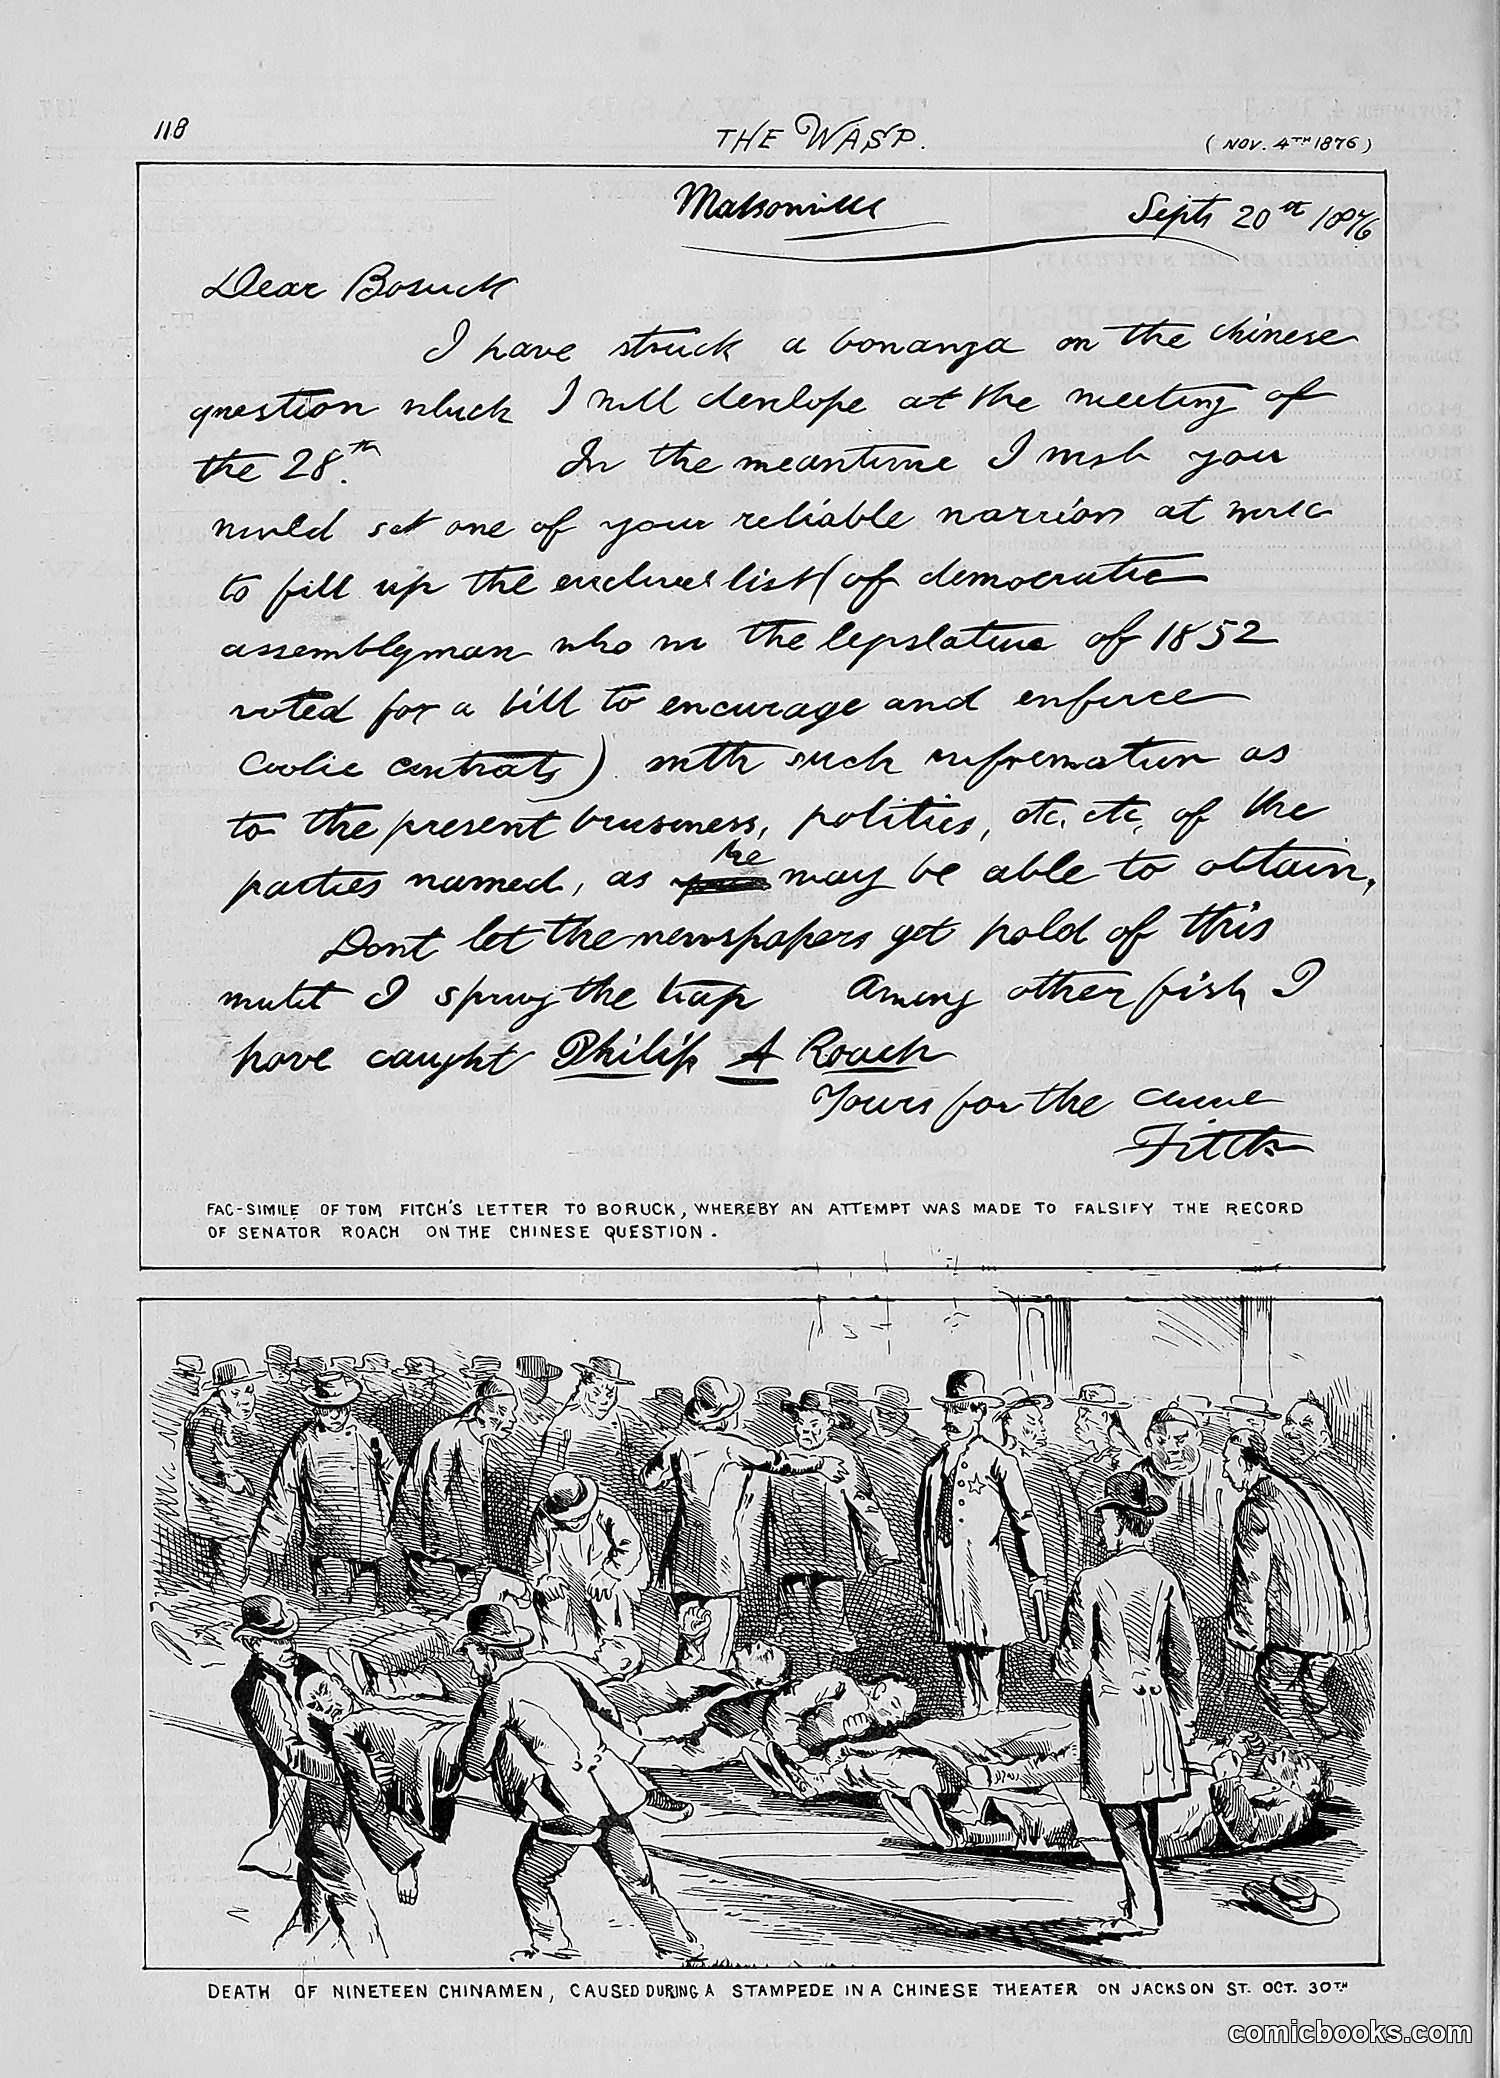 118
THE WASP.
(NOV. 4TH 1876)
Matsonville
Sept 20th 1876
Dear Boruck
I have struck a bonanza on the chinese
question which I will develope at the meeting of
the 28th. In the meantime I wish you
would set one of your reliable warriors at work
to fill up the enclosed list (of democratic
assemblyman who in the legislature of 1852
voted for a bill to encourage and enforce
Coolie contrats) with such information as
to the present bussiness, politics, etc. etc, of the
parties named, as he may be able to obtain.
Dont let the newspapers get hold of this
until I spring the trap Among other fish I
have caught Philip A Roach
Yours for the cause
Fitch
FAC-SIMILE OF TOM FITCH'S LETTER TO BORUCK, WHEREBY AN ATTEMPT WAS MADE TO FALSIFY THE RECORD
OF SENATOR ROACH ON THE CHINESE QUESTION.
DEATH OF NINETEEN CHINAMEN, CAUSED DURING A STAMPEDE IN A CHINESE THEATER ON JACKSON ST. OCT. 30TH
comicbooks.com